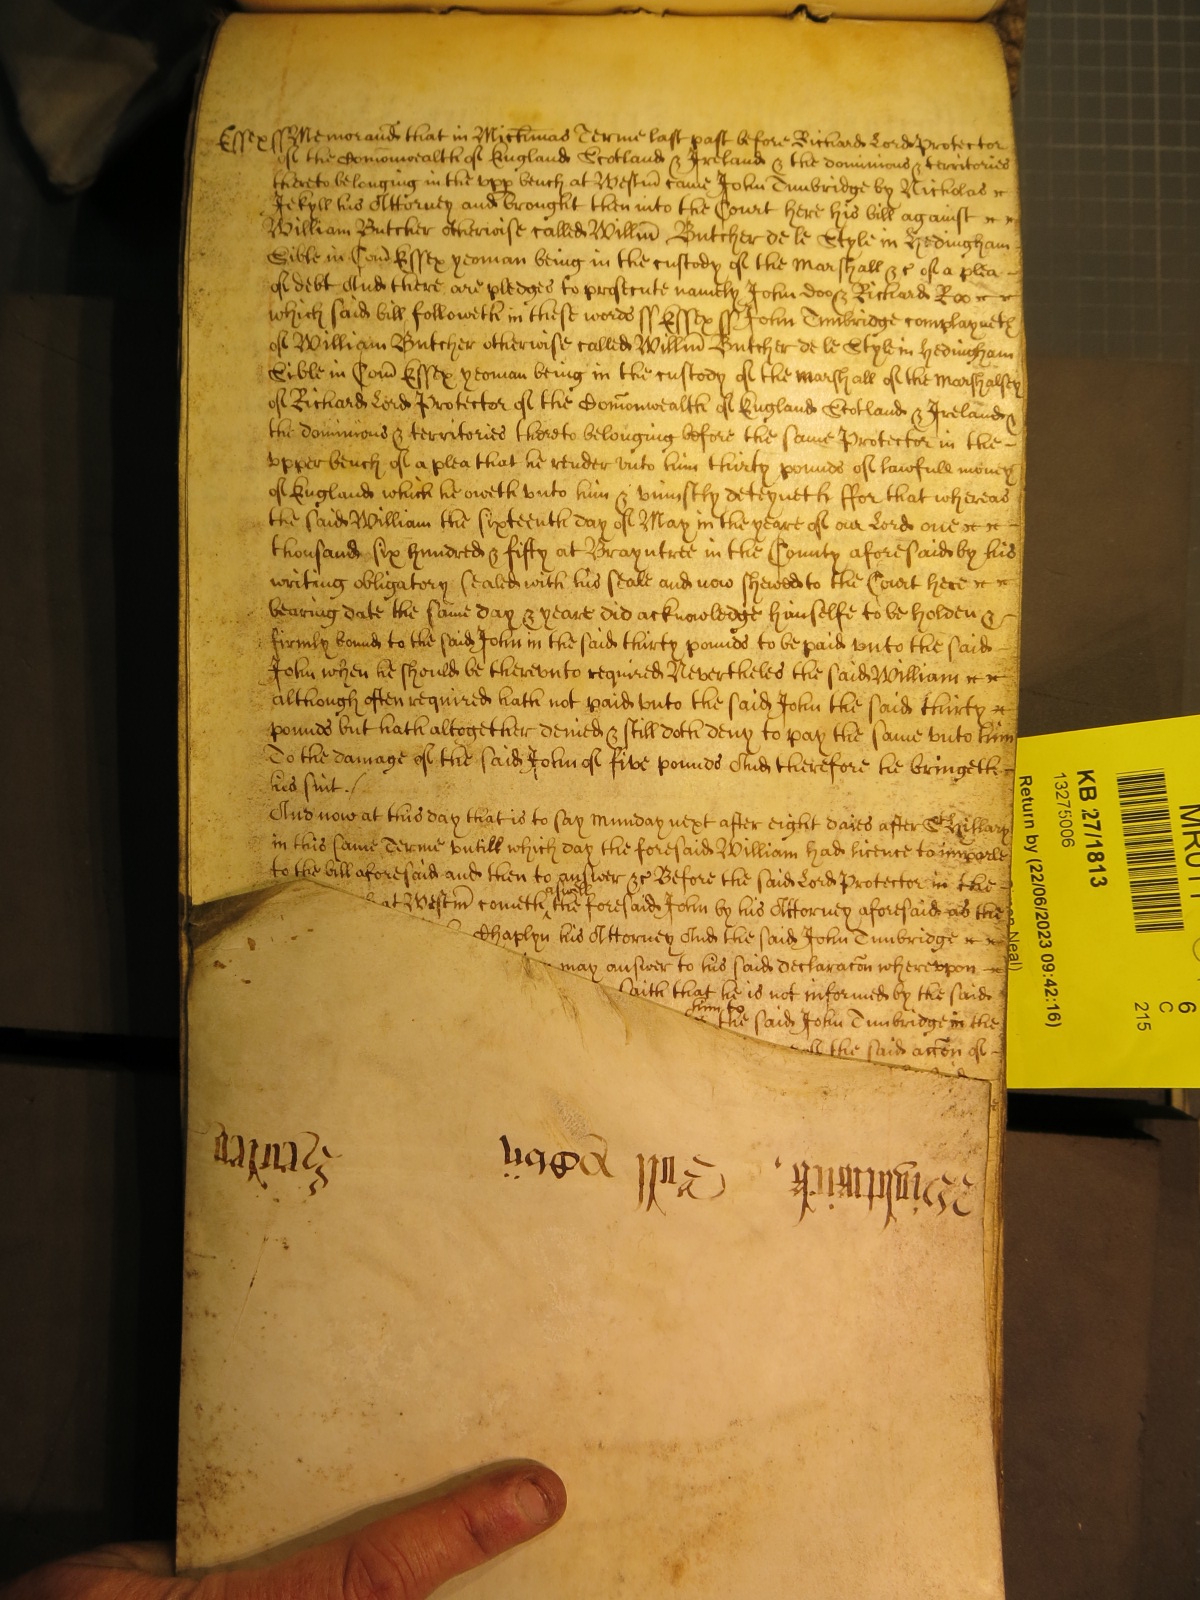 Essex ss Memorand that in Mich'mas Terme last past before Richard Lord Protector
of the Comonwealth of England Scotland & Ireland & the dominions & territories
thereto belonging in the upp bench at Westm came John Tunbridge by Nicholas
Jekyll his Attorney and brought then into the Court here his bill against
William Butcher otherwise called Willm Butcher de le Style in Hedingham
Sible in Com Essex yeoman being in the custody of the Marshall &c of a plea
of debt And there are pledges to prosecute namely John Doo & Richard Roo
which said bill followeth in these words ss Essex ss John Tunbridge complayneth
of William Butcher otherwise called Willm Butcher de le Style in Hedingham
Sible in Com Essex yeoman being in the custody of the marshall of the Marshalsey
of Richard Lord Protector of the Comonwealth of England Scotland & Ireland &
the dominions & territories thereto belonging before the same Protector in the
upper bench of a plea that he render unto him thirty pounds of lawfull money
of England which he oweth unto him & uniustly deteyneth ffor that whereas
the said William the sixteenth day of May in the yeare of our Lord one
thousand six hundred & fifty at Brayntree in the County aforesaid by his
writing obligatory sealed with his seale and now shewed to the Court here
bearing date the same day & yeare did acknowledge himselfe to be holden &
firmly bound to the said John in the said thirty pounds to be paid unto the said
John when he should be thereunto required Nevertheles the said William
although often required hath not paid unto the said John the said thirty
pounds but hath altogether denied & still doth deny to pay the same unto him
To the damage of the said John of five pounds And therefore he bringeth
his suit /
And now at this day that is to say Munday next after eight daies after St Hillary
in this same Terme untill which day the foresaid William had licence to imparle
to the bill aforesaid and then to answer &c Before the said Lord Protector in the
at Westm cometh aswell the foresaid John by his Attorney aforesaid as the
Chaplyn his Attorney And the said John Tunbridge
may answer to his said declaracon whereupon
saith that he is not informed by the said
him to
the said John Tunbridge in the
the said accon of
Wightwick
MRUTT
KB 27/1813
13275006
Return by (22/06/2023 09:42:16)
Neal)
6
C
215